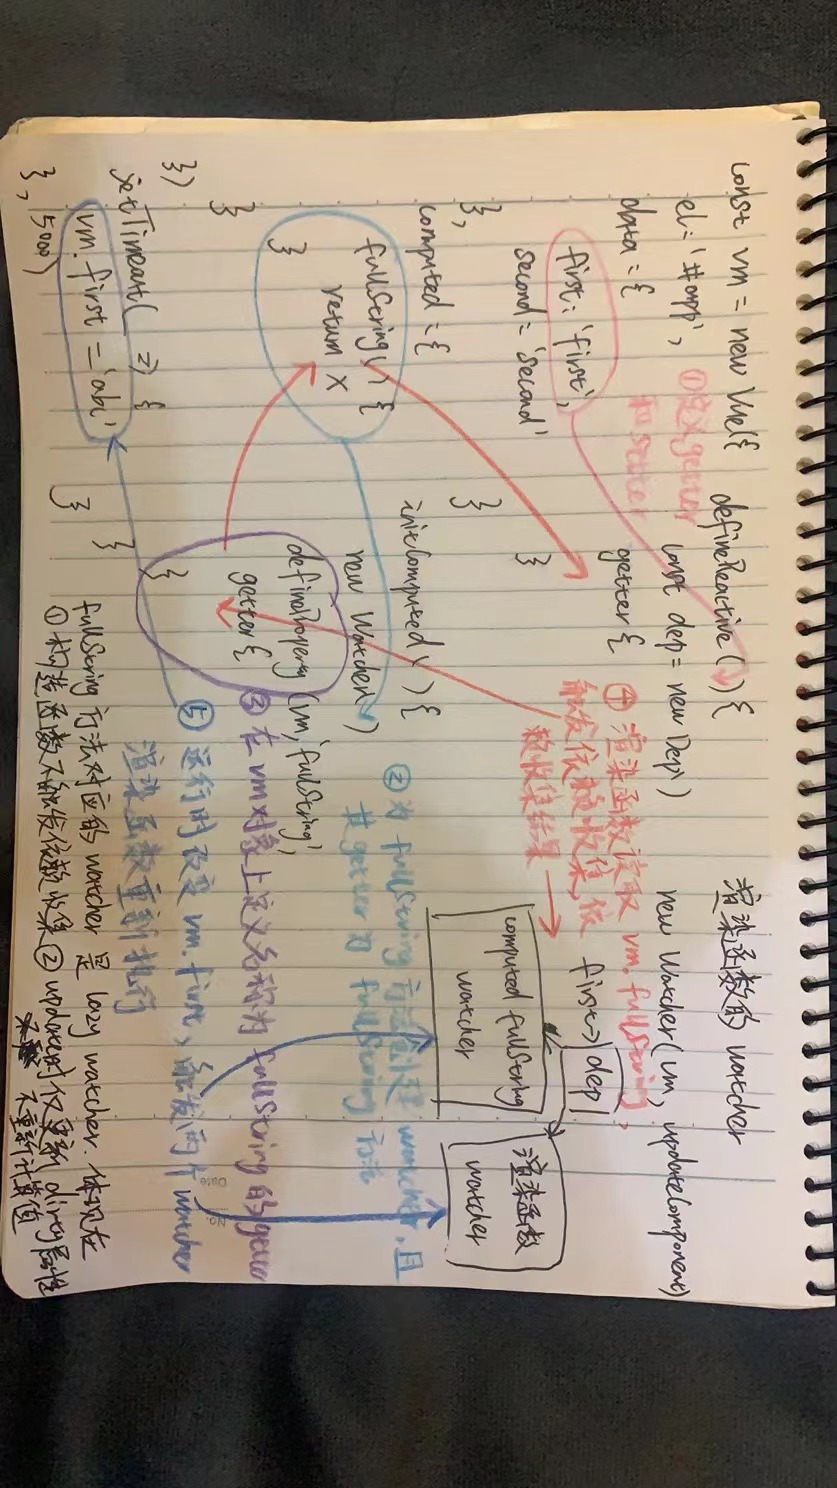 const vm = new Vue({
el: '#app',
data = {
first: 'first',
second = 'second'
},
computed = {
fullString() {
return X
}
}
})
setTimeout(_ => {
vm.first = 'abc'
}, 5000)
①定义getter
和setter
defineReactive () {
const dep = new Dep()
getter {
}
}
initComputed() {
new Watcher()
defineProperty (vm, 'fullString',
getter {
}
}
}
渲染函数的 watcher
new Watcher(vm, updateComponent)
④ 渲染函数读取 vm.fullString,
触发依赖收集,依
赖收集结果
first→ dep
computed fullString
watcher
渲染函数
watcher
② 为 fullString 方法创建 watcher,且
其getter为 fullString 方法
③ 在 vm 对象上定义名称为 fullString 的getter
No.
Date
⑤ 运行时改变 vm.first, 触发两个watcher
渲染函数重新执行
fullString 方法对应的 watcher 是 lazy watcher. 体现在
① 构造函数不触发依赖收集 ② update时仅更新 dirty属性
不重新计算值